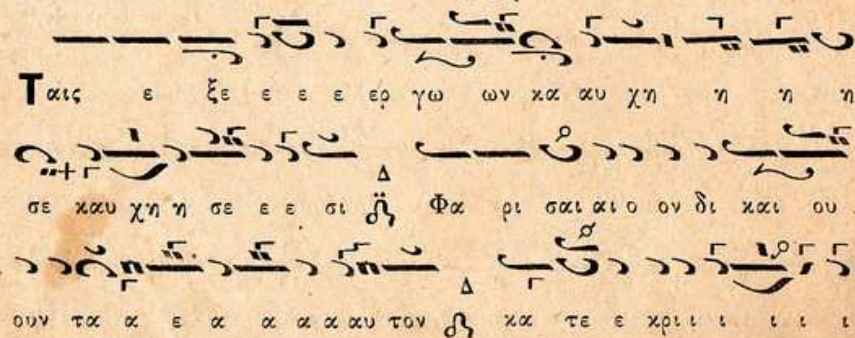 Ταις ε ξε ε ε ε ερ γω ων κα αυ χη η η η
σε καυ χη η σε ε ε σι Δ Φα ρι σαι αι ο ον δι και ου
ουν τα α ε α α α α αυ τον Δ κα τε ε κρι ι ι ι ι ι